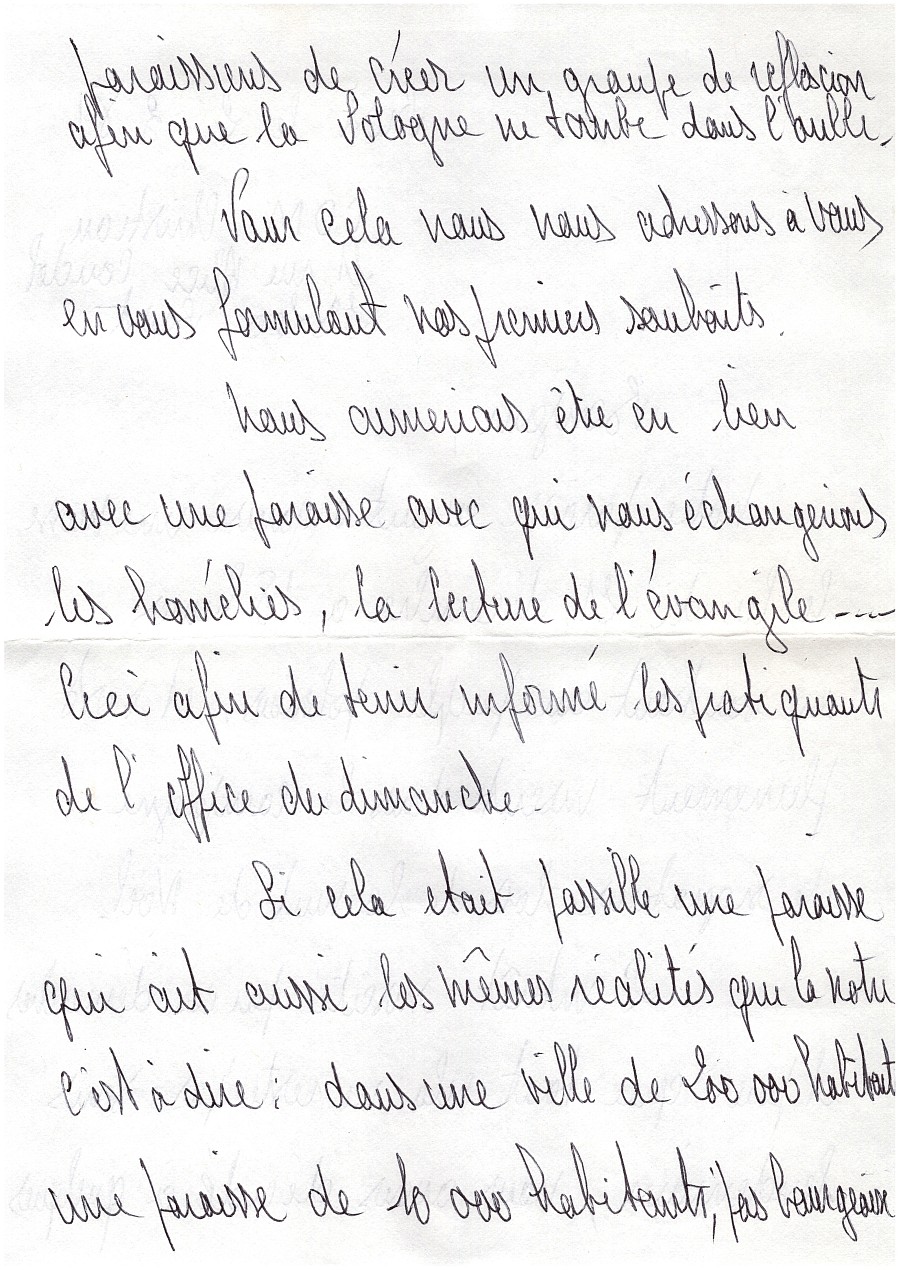 paroissiens de créer un groupe de réflexion
afin que la Pologne ne tombe dans l'oubli.
Pour cela nous nous adressons à vous
en vous formulant nos premiers souhaits.
Nous aimerions être en lien
avec une paroisse avec qui nous échangerions
les homélies, la lecture de l'évangile ----
Ceci afin de tenir informé les pratiquants
de l'office du dimanche
Si cela etait possible une paroisse
qui ait aussi les mêmes réalités que la notre
c'est à dire : dans une ville de 200 000 habitant
une paroisse de 10 000 habitants, pas bourgeoise